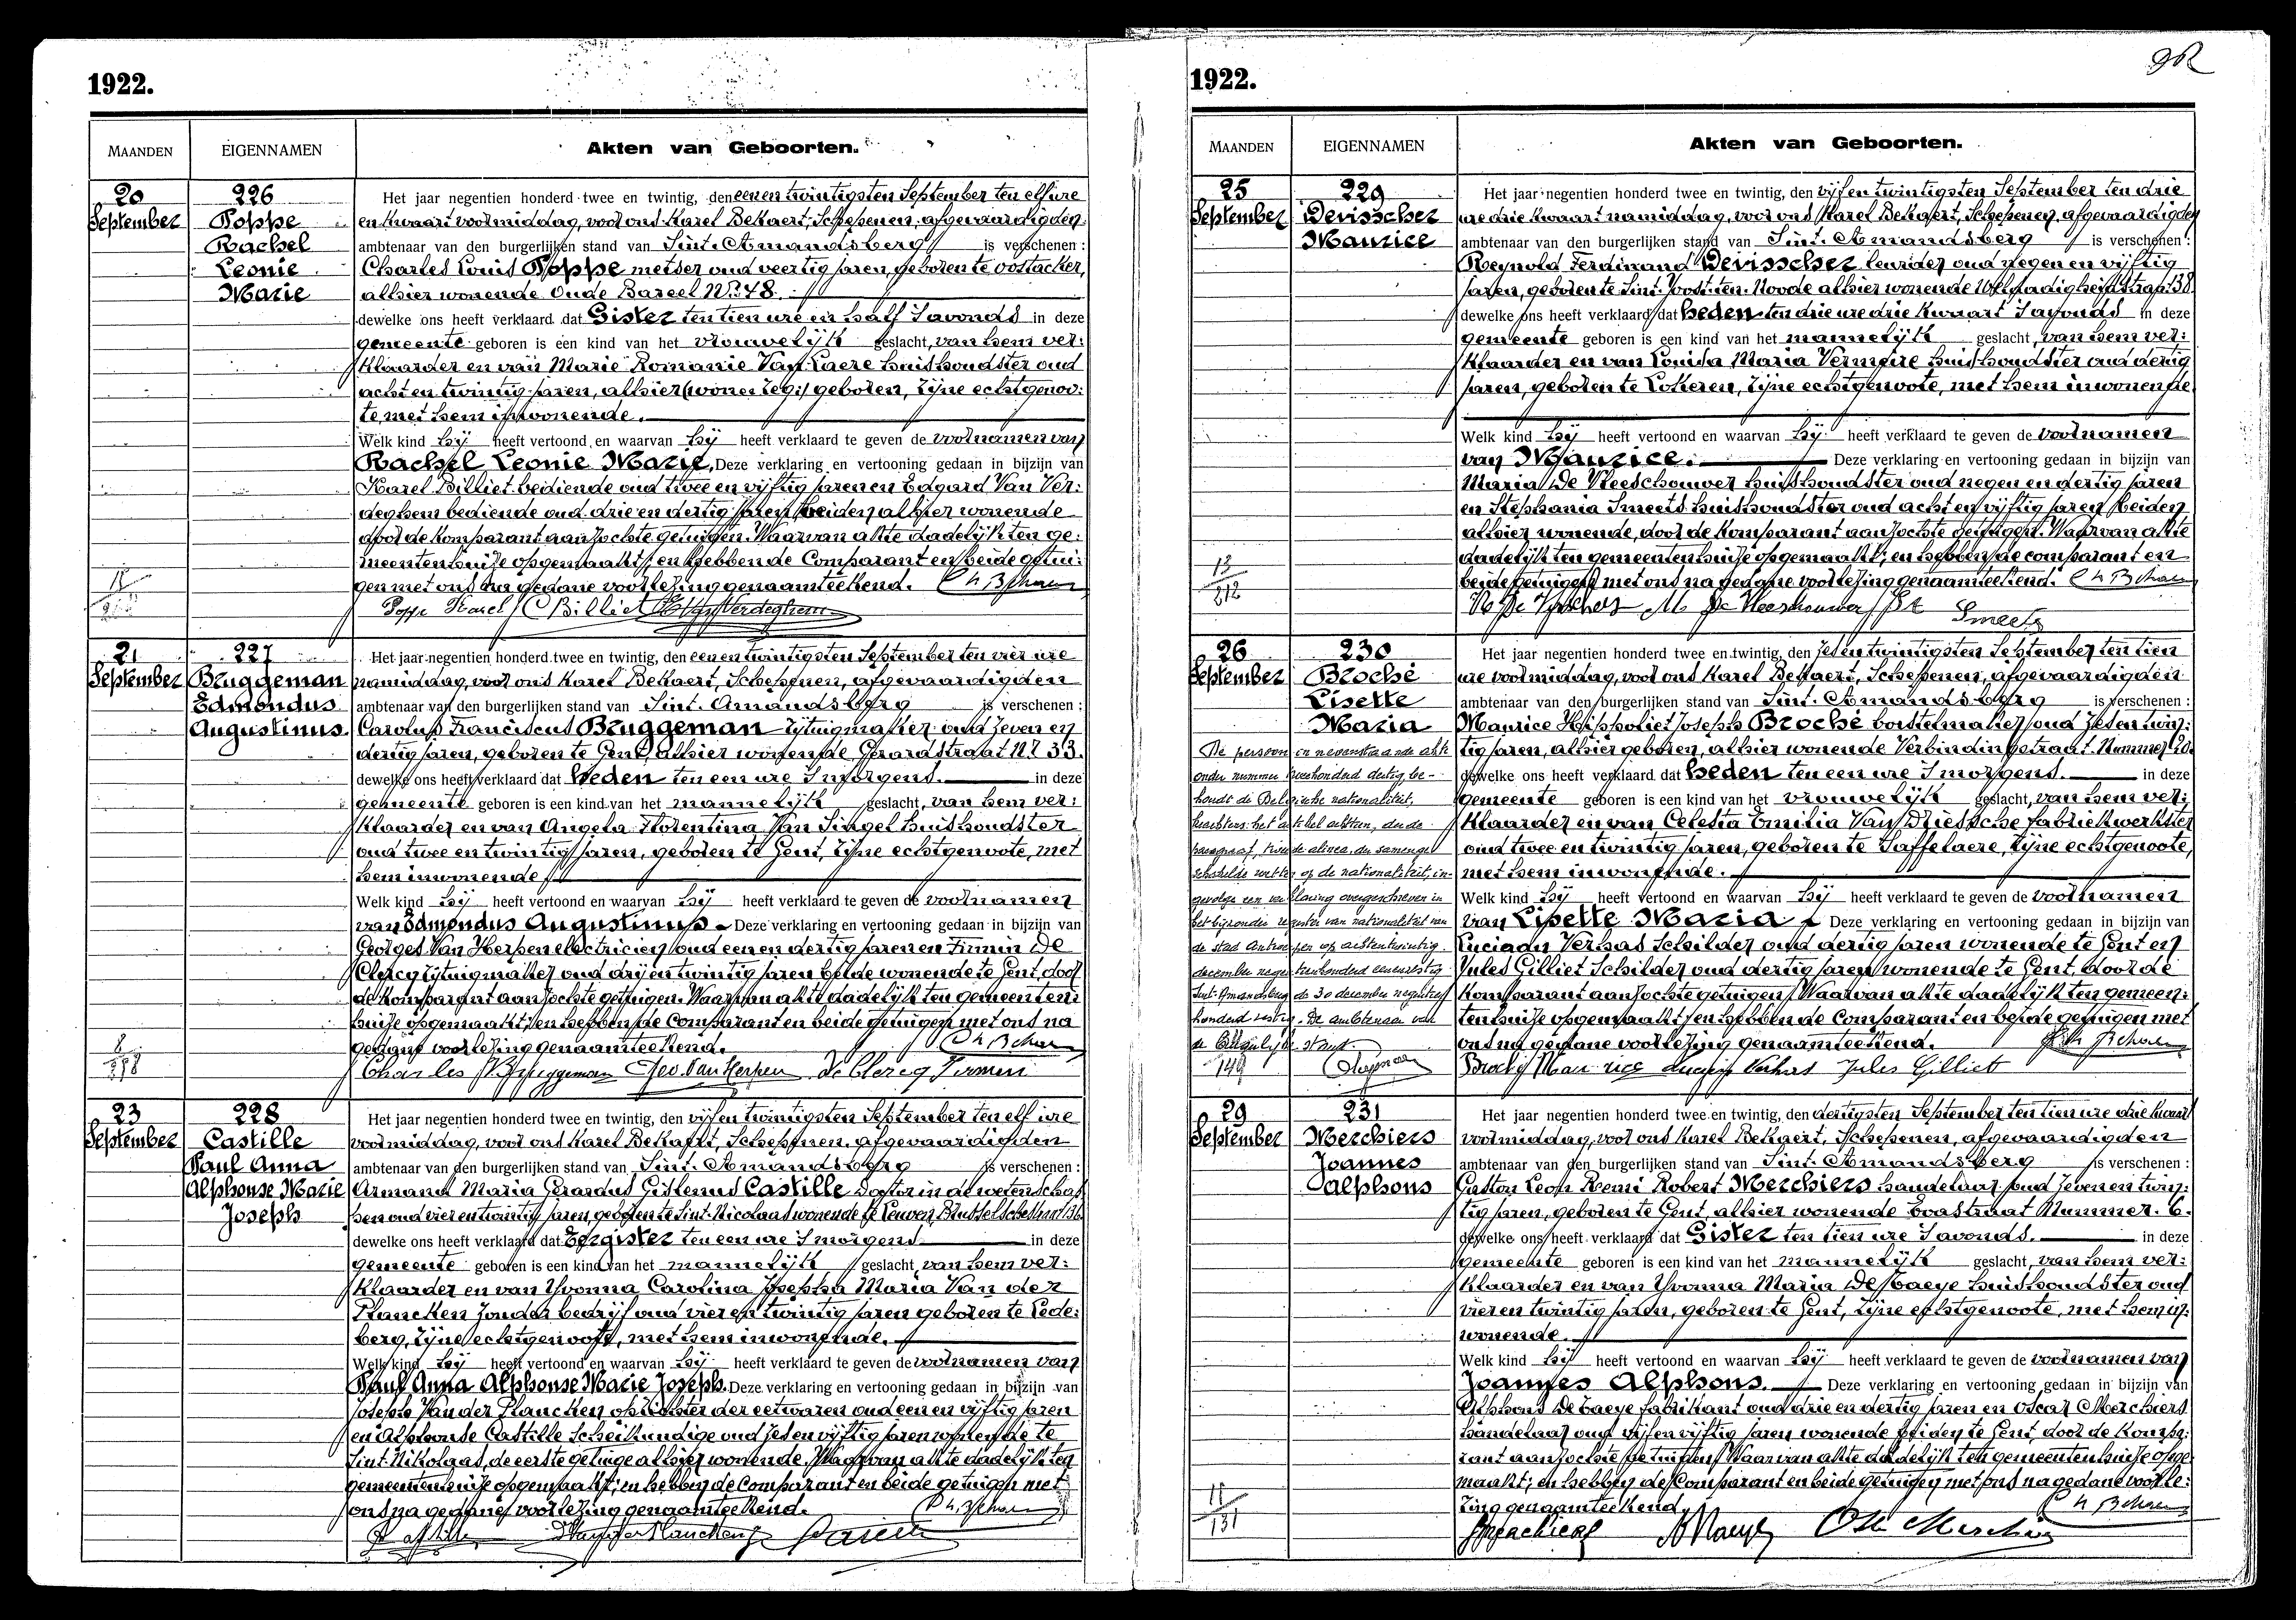 1922.
MAANDEN EIGENNAMEN Akten van Geboorten.
20 September
226
Poppe
Rachel
Leonie
Marie
Het jaar negentien honderd twee en twintig, den eenen twintigsten September ten elf ure
en kwaart voormiddag, voor ons Karel Bekaert, Schepenen, afgevaardigden
ambtenaar van den burgerlijken stand van Sint-Amandsberg is verschenen:
Charles Louis Poppe metser oud veertig jaren, geboren te Oostacker,
alhier wonende Oude Bareel Nr. 78.
dewelke ons heeft verklaard dat Gister ten tien ure en half 's avonds in deze
gemeente geboren is een kind van het vrouwelijk geslacht, van hem ver:
klaarder en van Marie Romanie Van Laere huishoudster oud
acht en twintig jaren, alhier geboren, zijne echtgenoo:
te, met hem inwonende.
Welk kind hij heeft vertoond en waarvan hij heeft verklaard te geven de voornamen van
Rachel Leonie Marie, Deze verklaring en vertooning gedaan in bijzijn van
Karel Billiet bediende oud twee en vijftig jaren en Edgard Van Ver:
deghem bediende oud drie en dertig jaren beiden alhier wonende
door de komparant aanzochte getuigen. Waarvan akte dadelijk ten ge:
meentenhuize opgemaakt; en hebben de Comparant en beide getui:
gen met ons na gedane voorlezing genaamteekend.
Poppe Karel C Billiet Verdeghem
21 September
227
Bruggeman
Edmondus
Augustinus
Het jaar negentien honderd twee en twintig, den eenen twintigsten September ten vier ure
namiddag, voor ons Karel Bekaert, Schepenen, afgevaardigden
ambtenaar van den burgerlijken stand van Sint-Amandsberg is verschenen:
Carolus Franciscus Bruggeman zijtuigmaker oud zeven en
dertig jaren, geboren te Gent, alhier wonende Gerardstraat Nr. 33.
dewelke ons heeft verklaard dat heden ten een ure 's morgens. in deze
gemeente geboren is een kind van het mannelijk geslacht, van hem ver:
klaarder en van Angela Florentina Van Singel huishoudster
oud twee en twintig jaren, geboren te Gent, zijne echtgenoote, met
hem inwonende
Welk kind hij heeft vertoond en waarvan hij heeft verklaard te geven de voornamen
van Edmondus Augustinus Deze verklaring en vertooning gedaan in bijzijn van
Georges Van Herpen electricien oud eenen dertig jaren en Firmin De
Clercq zijtuigmaker oud drij en twintig jaren beide wonende te Gent, door
de komparant aanzochte getuigen. Waarvan akte dadelijk ten gemeenten:
huize opgemaakt; en hebben de Comparant en beide getuigen met ons na
gedane voorlezing genaamteekend.
Charles Bruggeman Geo Van Herpen De Clercq Firmin
23 September
228
Castille
Paul Anna
Alphonse Marie
Joseph
Het jaar negentien honderd twee en twintig, den vijfen twintigsten September ten elf ure
voormiddag, voor ons Karel Bekaert, Schepenen, afgevaardigden
ambtenaar van den burgerlijken stand van Sint-Amandsberg is verschenen:
Armand Maria Gerardus Gislenus Castille Doctor in de wetenschap
pen oud vier en twintig jaren, geboren te Sint-Nicolaas wonende te Leuven, Brusselsche
dewelke ons heeft verklaard dat Eergister ten een ure 's morgens in deze
gemeente geboren is een kind van het mannelijk geslacht van hem ver:
klaarder en van Yvonna Carolina Josepha Maria Van der
Plancken zonder bedrijf oud vier en twintig jaren geboren te Lede:
berg, zijne echtgenoote, met hem inwonende.
Welk kind hij heeft vertoond en waarvan hij heeft verklaard te geven de voornamen van
Paul Anna Alphonse Marie Joseph. Deze verklaring en vertooning gedaan in bijzijn van
Joseph Van der Plancken opzichter der eetwaren oud een en vijftig jaren
en Alphonse Castille Scheikundige oud zes en vijftig jaren wonende te
Sint-Nikolaas, de eerste getuige alhier wonende. Waarvan akte dadelijk ten
gemeentenhuize opgemaakt; en hebben de Comparant en beide getuigen met
ons na gedane voorlezing genaamteekend.
1922.
MAANDEN EIGENNAMEN Akten van Geboorten.
25 September
229
Devisscher
Maurice
Het jaar negentien honderd twee en twintig, den vijfen twintigsten September ten drie
ure drie kwaart namiddag, voor ons Karel Bekaert, Schepenen, afgevaardigden
ambtenaar van den burgerlijken stand van Sint-Amandsberg is verschenen:
Reynold Ferdinand Devisscher leurder oud negen en vijftig
jaren, geboren te Sint-Joost-ten-Noode alhier wonende 38
dewelke ons heeft verklaard dat heden ten drie ure drie kwaart 's avonds in deze
gemeente geboren is een kind van het mannelijk geslacht, van hem ver:
klaarder en van Louisa Maria Vermeire huishoudster oud dertig
jaren, geboren te Lokeren, zijne echtgenoote, met hem inwonende
Welk kind hij heeft vertoond en waarvan hij heeft verklaard te geven de voornamen
van Maurice. Deze verklaring en vertooning gedaan in bijzijn van
Maria De Vleeschouwer huishoudster oud negen en dertig jaren
en Stephania Smeets huishoudster oud acht en vijftig jaren beiden
alhier wonende, door de komparant aanzochte getuigen. Waarvan akte
dadelijk ten gemeentenhuize opgemaakt; en hebben de comparant en
beide getuigen met ons na gedane voorlezing genaamteekend.
Smeets
26 September
230
Broché
Lisette
Maria
Het jaar negentien honderd twee en twintig, den zesen twintigsten September ten tien
ure voormiddag, voor ons Karel Bekaert, Schepenen, afgevaardigden
ambtenaar van den burgerlijken stand van Sint-Amandsberg is verschenen:
Maurice Hippoliet Joseph Broché borstelmaker oud zes en twin:
tig jaren, alhier geboren, alhier wonende Verbindingstraat Nummer 20.
dewelke ons heeft verklaard dat heden ten een ure 's morgens. in deze
gemeente geboren is een kind van het vrouwelijk geslacht, van hem ver:
klaarder en van Celesta Emilia Van Driessche fabriekwerkster
oud twee en twintig jaren, geboren te Saffelaere, zijne echtgenoote,
met hem inwonende.
Welk kind hij heeft vertoond en waarvan hij heeft verklaard te geven de voornamen
van Lisette Maria Deze verklaring en vertooning gedaan in bijzijn van
Luciaan Verhas Schilder oud dertig jaren wonende te Gent en
Jules Gilliet Schilder oud dertig jaren wonende te Gent, door de
komparant aanzochte getuigen. Waarvan akte dadelijk ten gemeen:
tenhuize opgemaakt; en hebben de Comparant en beide getuigen met
ons na gedane voorlezing genaamteekend.
Maurice Jules Gilliet
De persoon in nevenstaande akte
onder nummer tweehonderd dertig be-
houdt de Belgische nationaliteit,
krachtens het artikel achttien, derde
paragraaf, tweede alinea, der samenge-
schakelde wetten op de nationaliteit, in-
gevolge een verklaring overgeschreven in
het bijzonder register van nationaliteit van
de stad Antwerpen op achtentwintig
december negentienhonderd eenenzestig
Sint-Amandsberg de 30 december negentien
honderd zestig. De ambtenaar van
de Burgerlijke stand.
29 September
231
Merchiers
Joannes
alphons
Het jaar negentien honderd twee en twintig, den dertigsten September ten tien ure drie kwart
voormiddag, voor ons Karel Bekaert, Schepenen, afgevaardigden
ambtenaar van den burgerlijken stand van Sint-Amandsberg is verschenen:
Gaston Leon Remi Robert Merchiers handelaar oud zeven en twin:
tig jaren, geboren te Gent, alhier wonende Evastraat Nummer 6.
dewelke ons heeft verklaard dat Gister ten tien ure 's avonds. in deze
gemeente geboren is een kind van het mannelijk geslacht, van hem ver:
klaarder en van Yvonna Maria De Baeye huishoudster oud
vier en twintig jaren, geboren te Gent, zijne echtgenoote, met hem in:
wonende.
Welk kind hij heeft vertoond en waarvan hij heeft verklaard te geven de voornamen van
Joannes Alphons. Deze verklaring en vertooning gedaan in bijzijn van
Alphons De Baeye fabrikant oud drie en dertig jaren en Oscar Merchiers
handelaar oud vijf en vijftig jaren wonende beiden te Gent, door de kompa:
rant aanzochte getuigen. Waarvan akte dadelijk ten gemeentenhuize opge
maakt; en hebben de Comparant en beide getuigen met ons na gedane voorle:
zing genaamteekend.